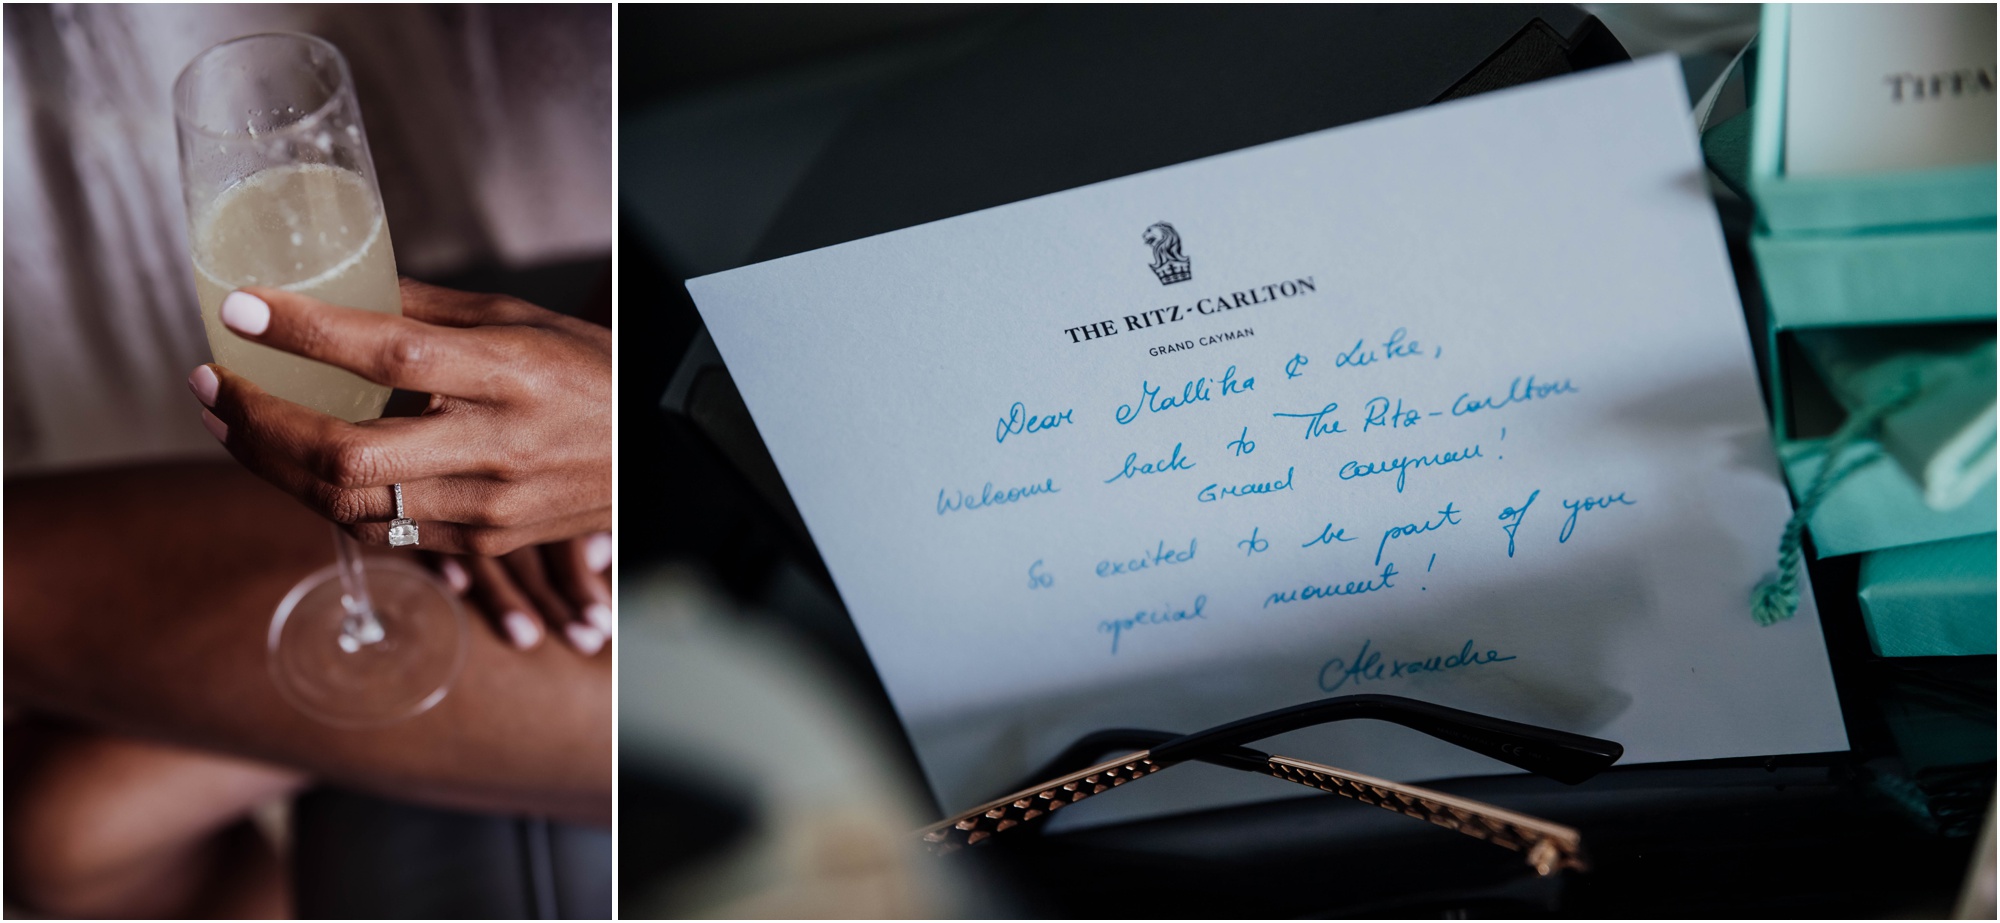 THE RITZ-CARLTON
GRAND CAYMAN
Dear Mallika & Luke,
Welcome back to The Ritz-Carlton
Grand Cayman!
So excited to be part of your
special moment!
Alexandre
TIFFA